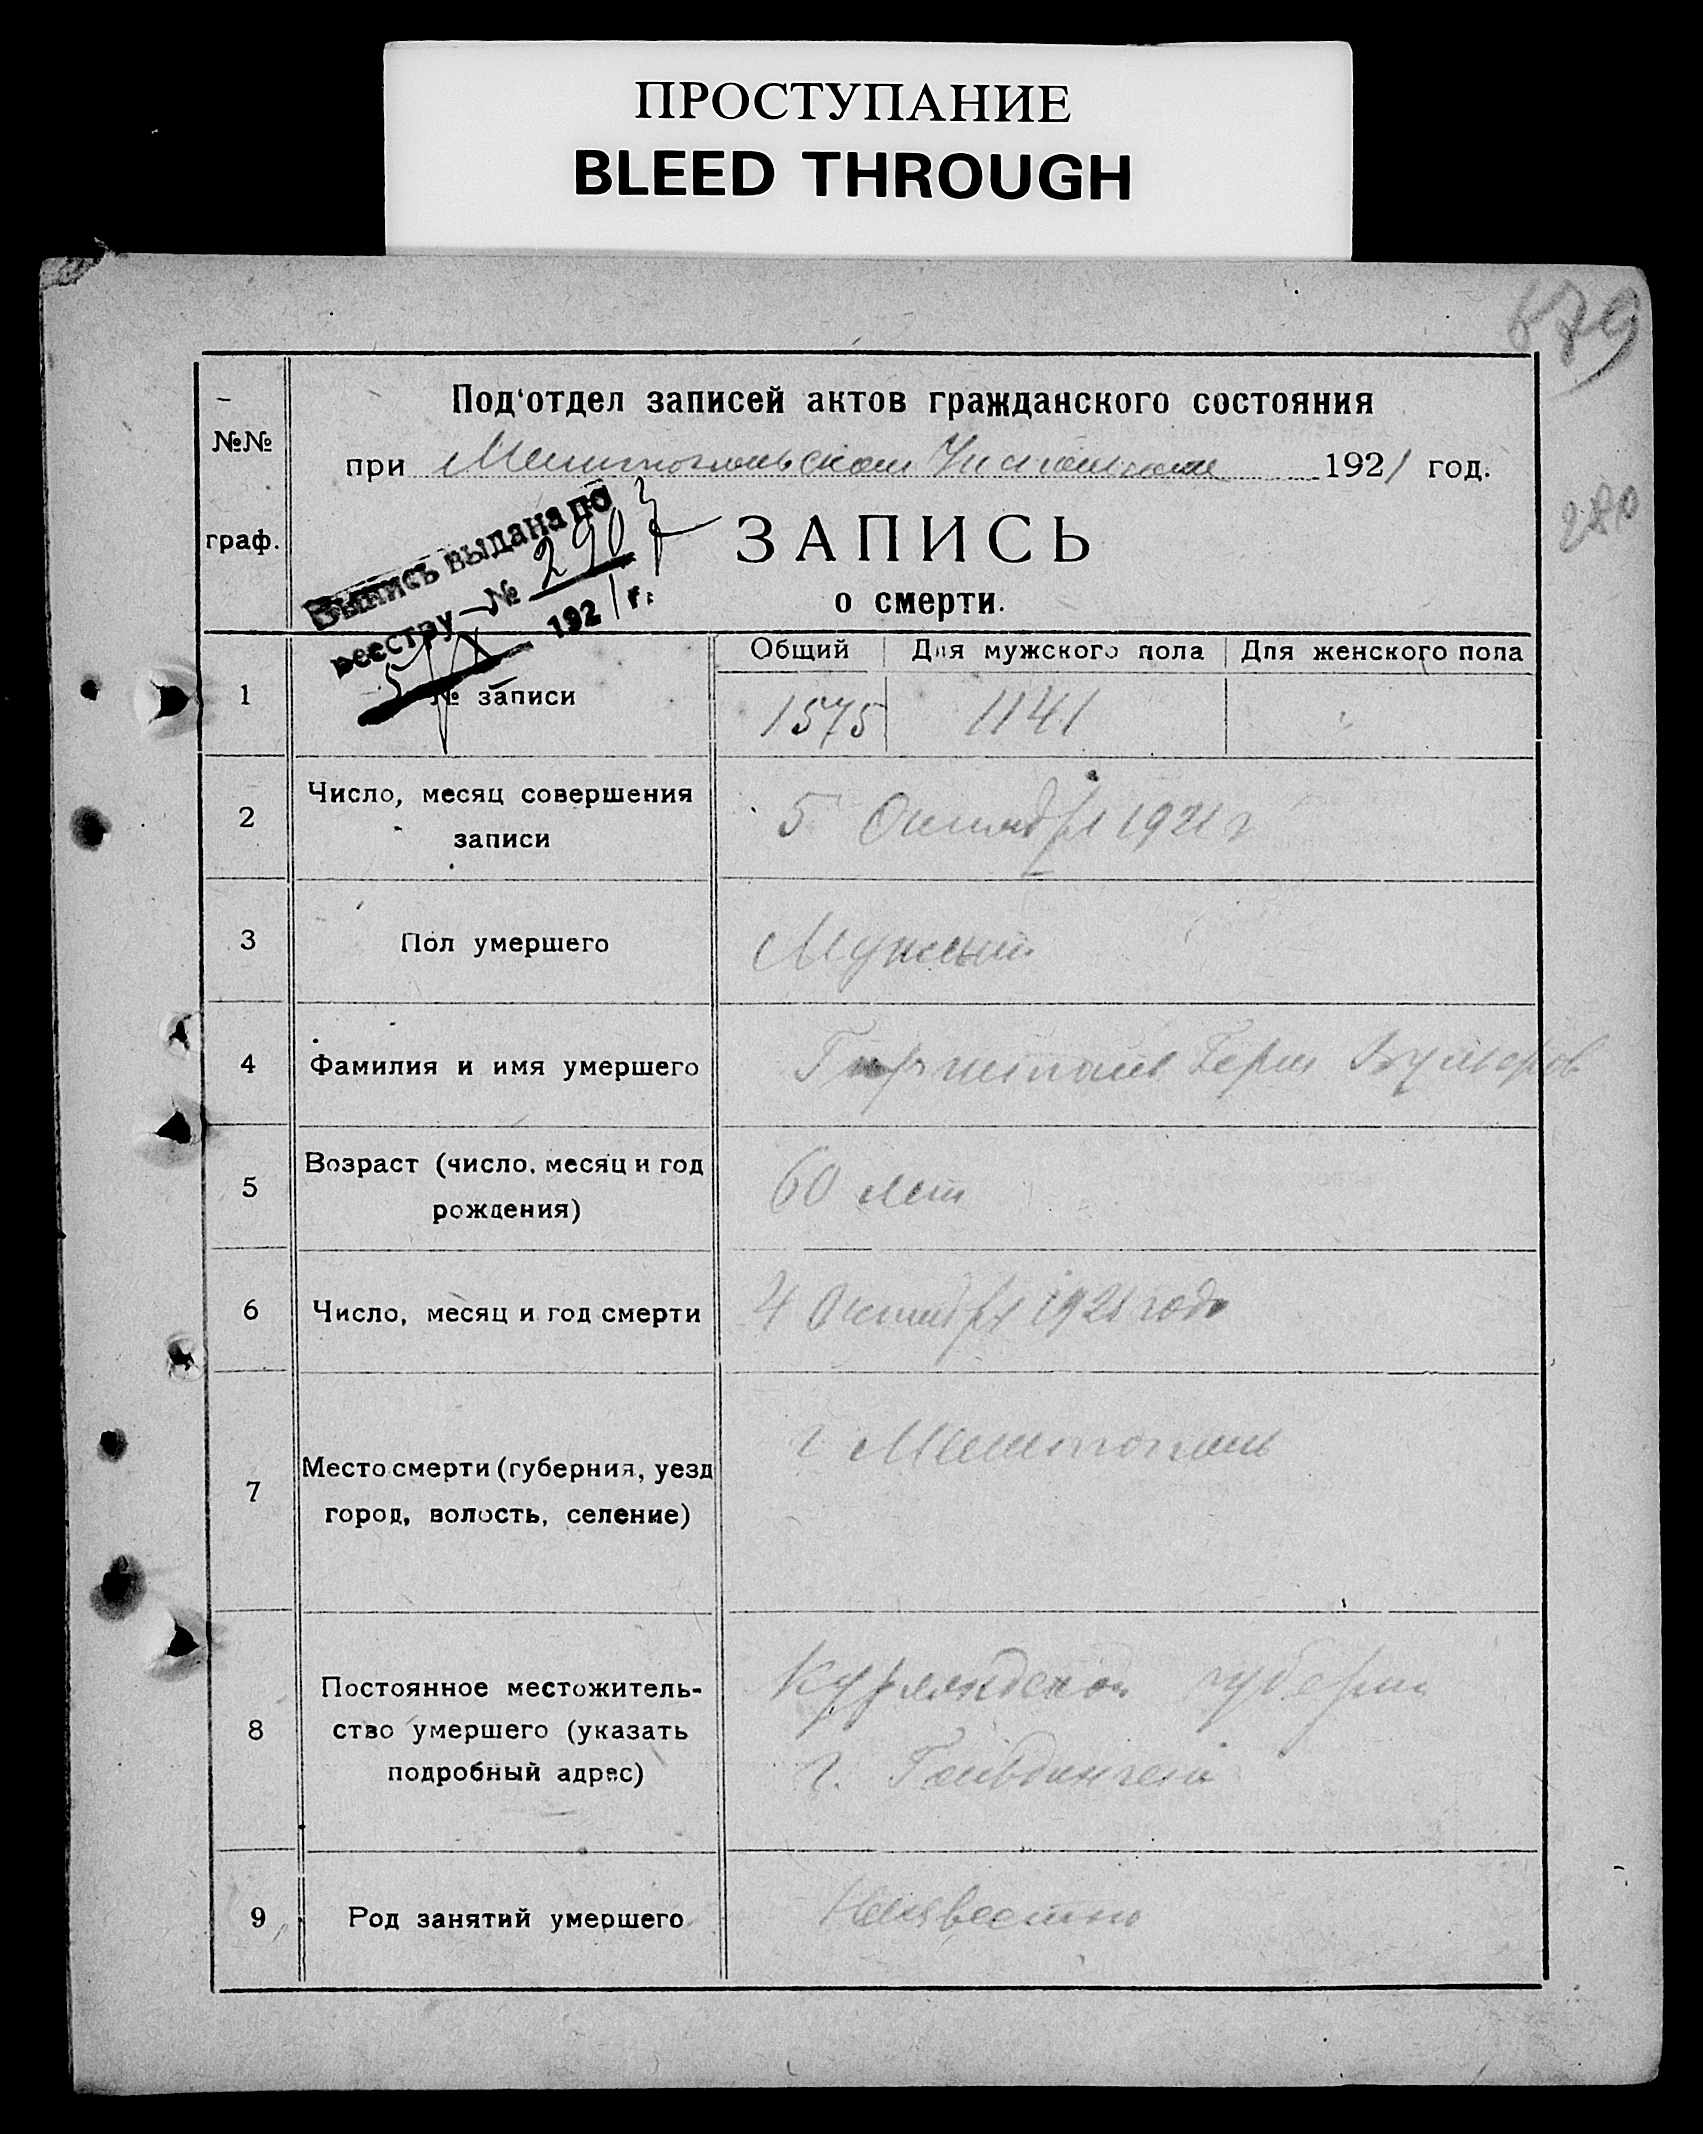 ПРОСТУПАНИЕ
BLEED THROUGH
679
280
№№
граф.
Под'отдел записей актов гражданского состояния
при Мелитопольском 1921 год.
Выпись выдана по
реестру № 2907
5/X 1921 г.
ЗАПИСЬ
о смерти.
Общий Для мужского пола Для женского пола
1 № записи 1575 1141 "
2 Число, месяц совершения
записи
5 Октября 1921 г
3 Пол умершего Мужской
4 Фамилия и имя умершего Берш
5 Возраст (число, месяц и год
рождения)
60 лет
6 Число, месяц и год смерти 4 Октября 1921 года
7 Место смерти (губерния, уезд
город, волость, селение)
г Мелитополь
8 Постоянное местожитель-
ство умершего (указать
подробный адрес)
Курляндской губерни
г. Гольдинген
9 Род занятий умершего Неизвестно